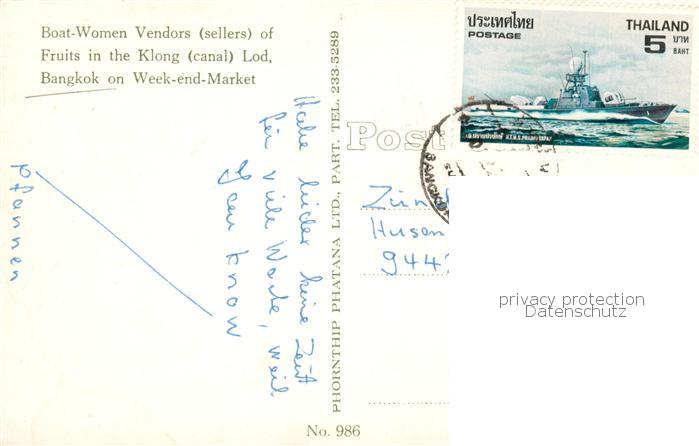 Boat-Women Vendors (sellers) of
Fruits in the Klong (canal) Lod,
Bangkok on Week-end-Market
ประเทศไทย
POSTAGE
THAILAND
5 บาท
BAHT
H.T.M.S.
BANGKOK
Post
PHORNTHIP PHATANA LTD., PART. TEL. 233-5289
Habe leider keine Zeit
für viele Worte, weil
You know
Pfannen
Husen
944
No. 986
privacy protection
Datenschutz